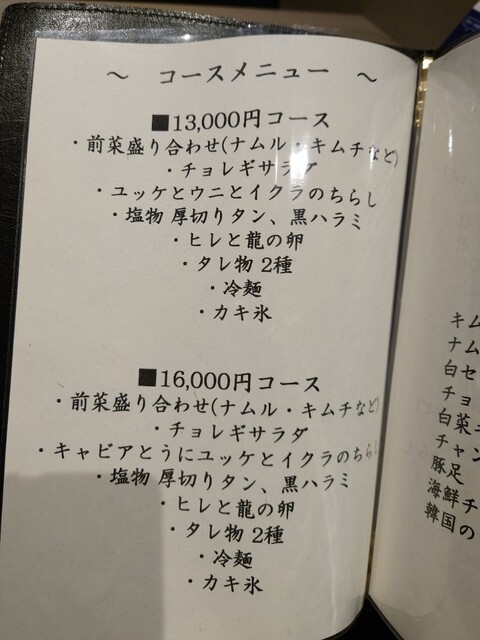 ～ コースメニュー ～
■13,000円コース
・前菜盛り合わせ(ナムル・キムチなど)
・チョレギサラダ
・ユッケとウニとイクラのちらし
・塩物 厚切りタン、黒ハラミ
・ヒレと龍の卵
・タレ物 2種
・冷麺
・カキ氷
■16,000円コース
・前菜盛り合わせ(ナムル・キムチなど)
・チョレギサラダ
・キャビアとうにユッケとイクラのちらし
・塩物 厚切りタン、黒ハラミ
・ヒレと龍の卵
・タレ物 2種
・冷麺
・カキ氷
キム
ナム
白セ
チョ
白菜キ
チャン
豚足
海鮮チ
韓国の